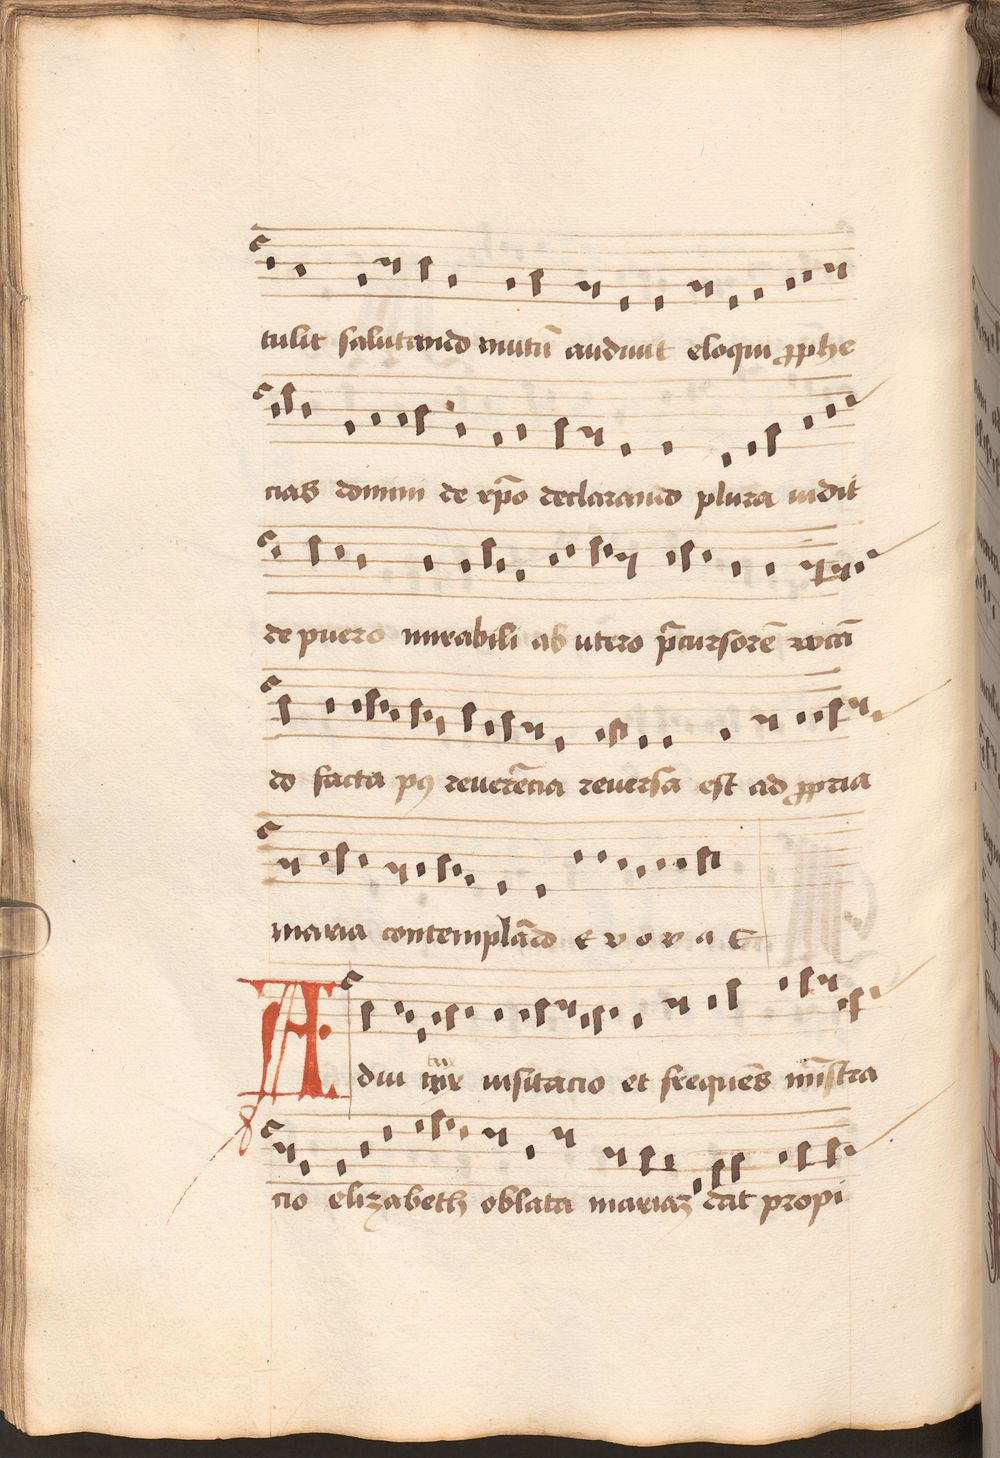 tulit salutando mutū audiuit eloqui ꝓphe
cias domini de xp̄o declarando plura vidit
de puero mirabili ab utero p̄cursorē vocā
do facta pꝰ reuerēcia reuersa est ad ꝓpria
maria contemplādo e v o v a E
A diu trix visitacio et frequēs mīstra
cio elizabeth oblata mariaz dat propi